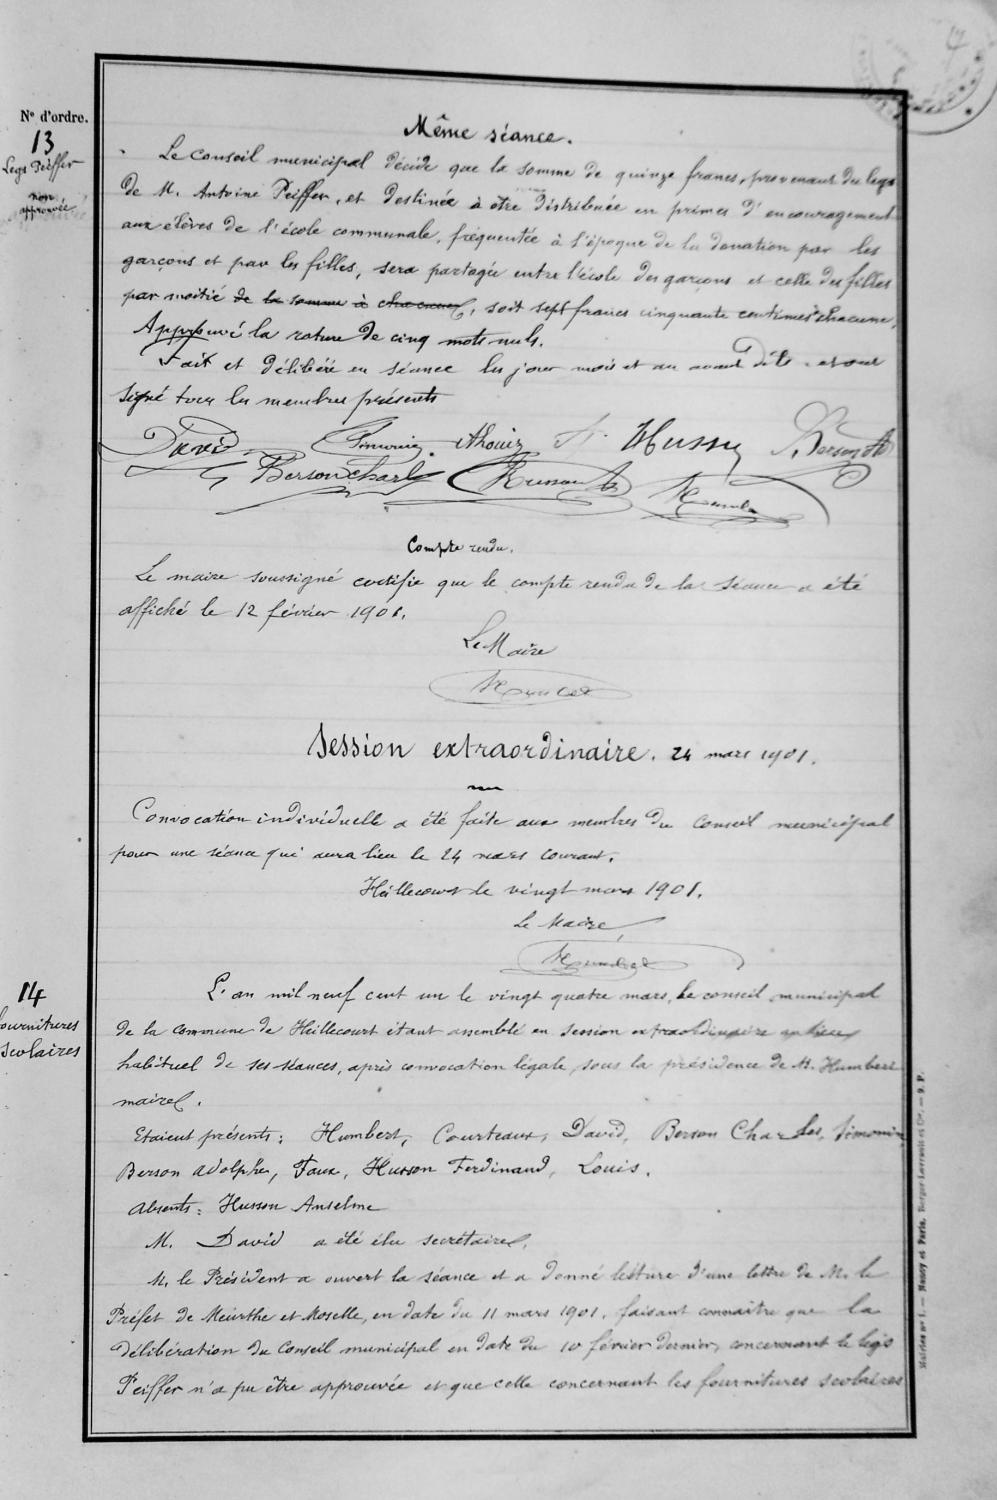 4
N° d'ordre.
13
Legs Peiffer
non
approuvée
Même séance.
Le Conseil municipal décide que la somme de quinze francs, provenant du legs
de M. Antoine Peiffer, et destinée à être distribuée en primes d'encouragement
aux élèves de l'école communale, fréquentée à l'époque de la donation par les
garçons et par les filles, sera partagée entre l'école des garçons et celle des filles
par moitié de la somme à chacune, soit sept francs cinquante centimes chacune,
Approuvé la rature de cinq mots nuls.
Fait et délibéré en séance les jour mois et an avant dits. et ont
signé tous les membres présents
David Simonin Houin Husson Berson A
Berson Charles Husson Humbert
Compte rendu.
Le maire soussigné certifie que le compte rendu de la séance a été
affiché le 12 février 1901.
Le Maire
Humbert
Session extraordinaire. 24 mars 1901.
Convocation individuelle a été faite aux membres du Conseil municipal
pour une séance qui aura lieu le 24 mars courant.
Heillecourt le vingt mars 1901.
Le Maire,
Humbert
14
Fournitures
scolaires
L'an mil neuf cent un le vingt quatre mars, le conseil municipal
de la commune de Heillecourt étant assemblé en session extraordinaire au lieu
habituel de ses séances, après convocation légale, sous la présidence de M. Humbert
maire.
Etaient présents: Humbert, Courteaux, David, Berson Charles, Simonin
Berson Adolphe, Faux, Husson Ferdinand, Louis.
Absents: Husson Anselme
M. David a été élu secrétaire.
M. le Président a ouvert la séance et a donné lecture d'une lettre de M. le
Préfet de Meurthe et Moselle, en date du 11 mars 1901, faisant connaître que la
délibération du Conseil municipal en date du 10 février dernier, concernant le legs
Peiffer n'a pu être approuvée et que celle concernant les fournitures scolaires
Mairies n° 1. — Nancy et Paris. Berger-Levrault et Cie. — 9. P.